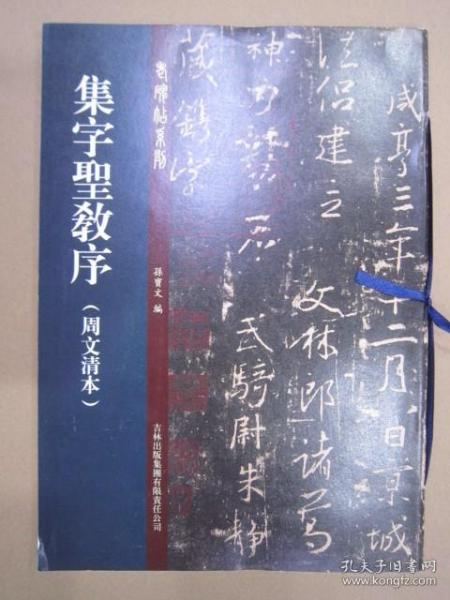 集字聖教序
（周文清本）
老碑帖系列
孫寶文 編
吉林出版集團有限責任公司
咸亨三年十二月八日京城
法侶建立
文林郎諸葛
神力勒石
武騎尉朱靜
藏鐫字
孔夫子旧书网
www.kongfz.com